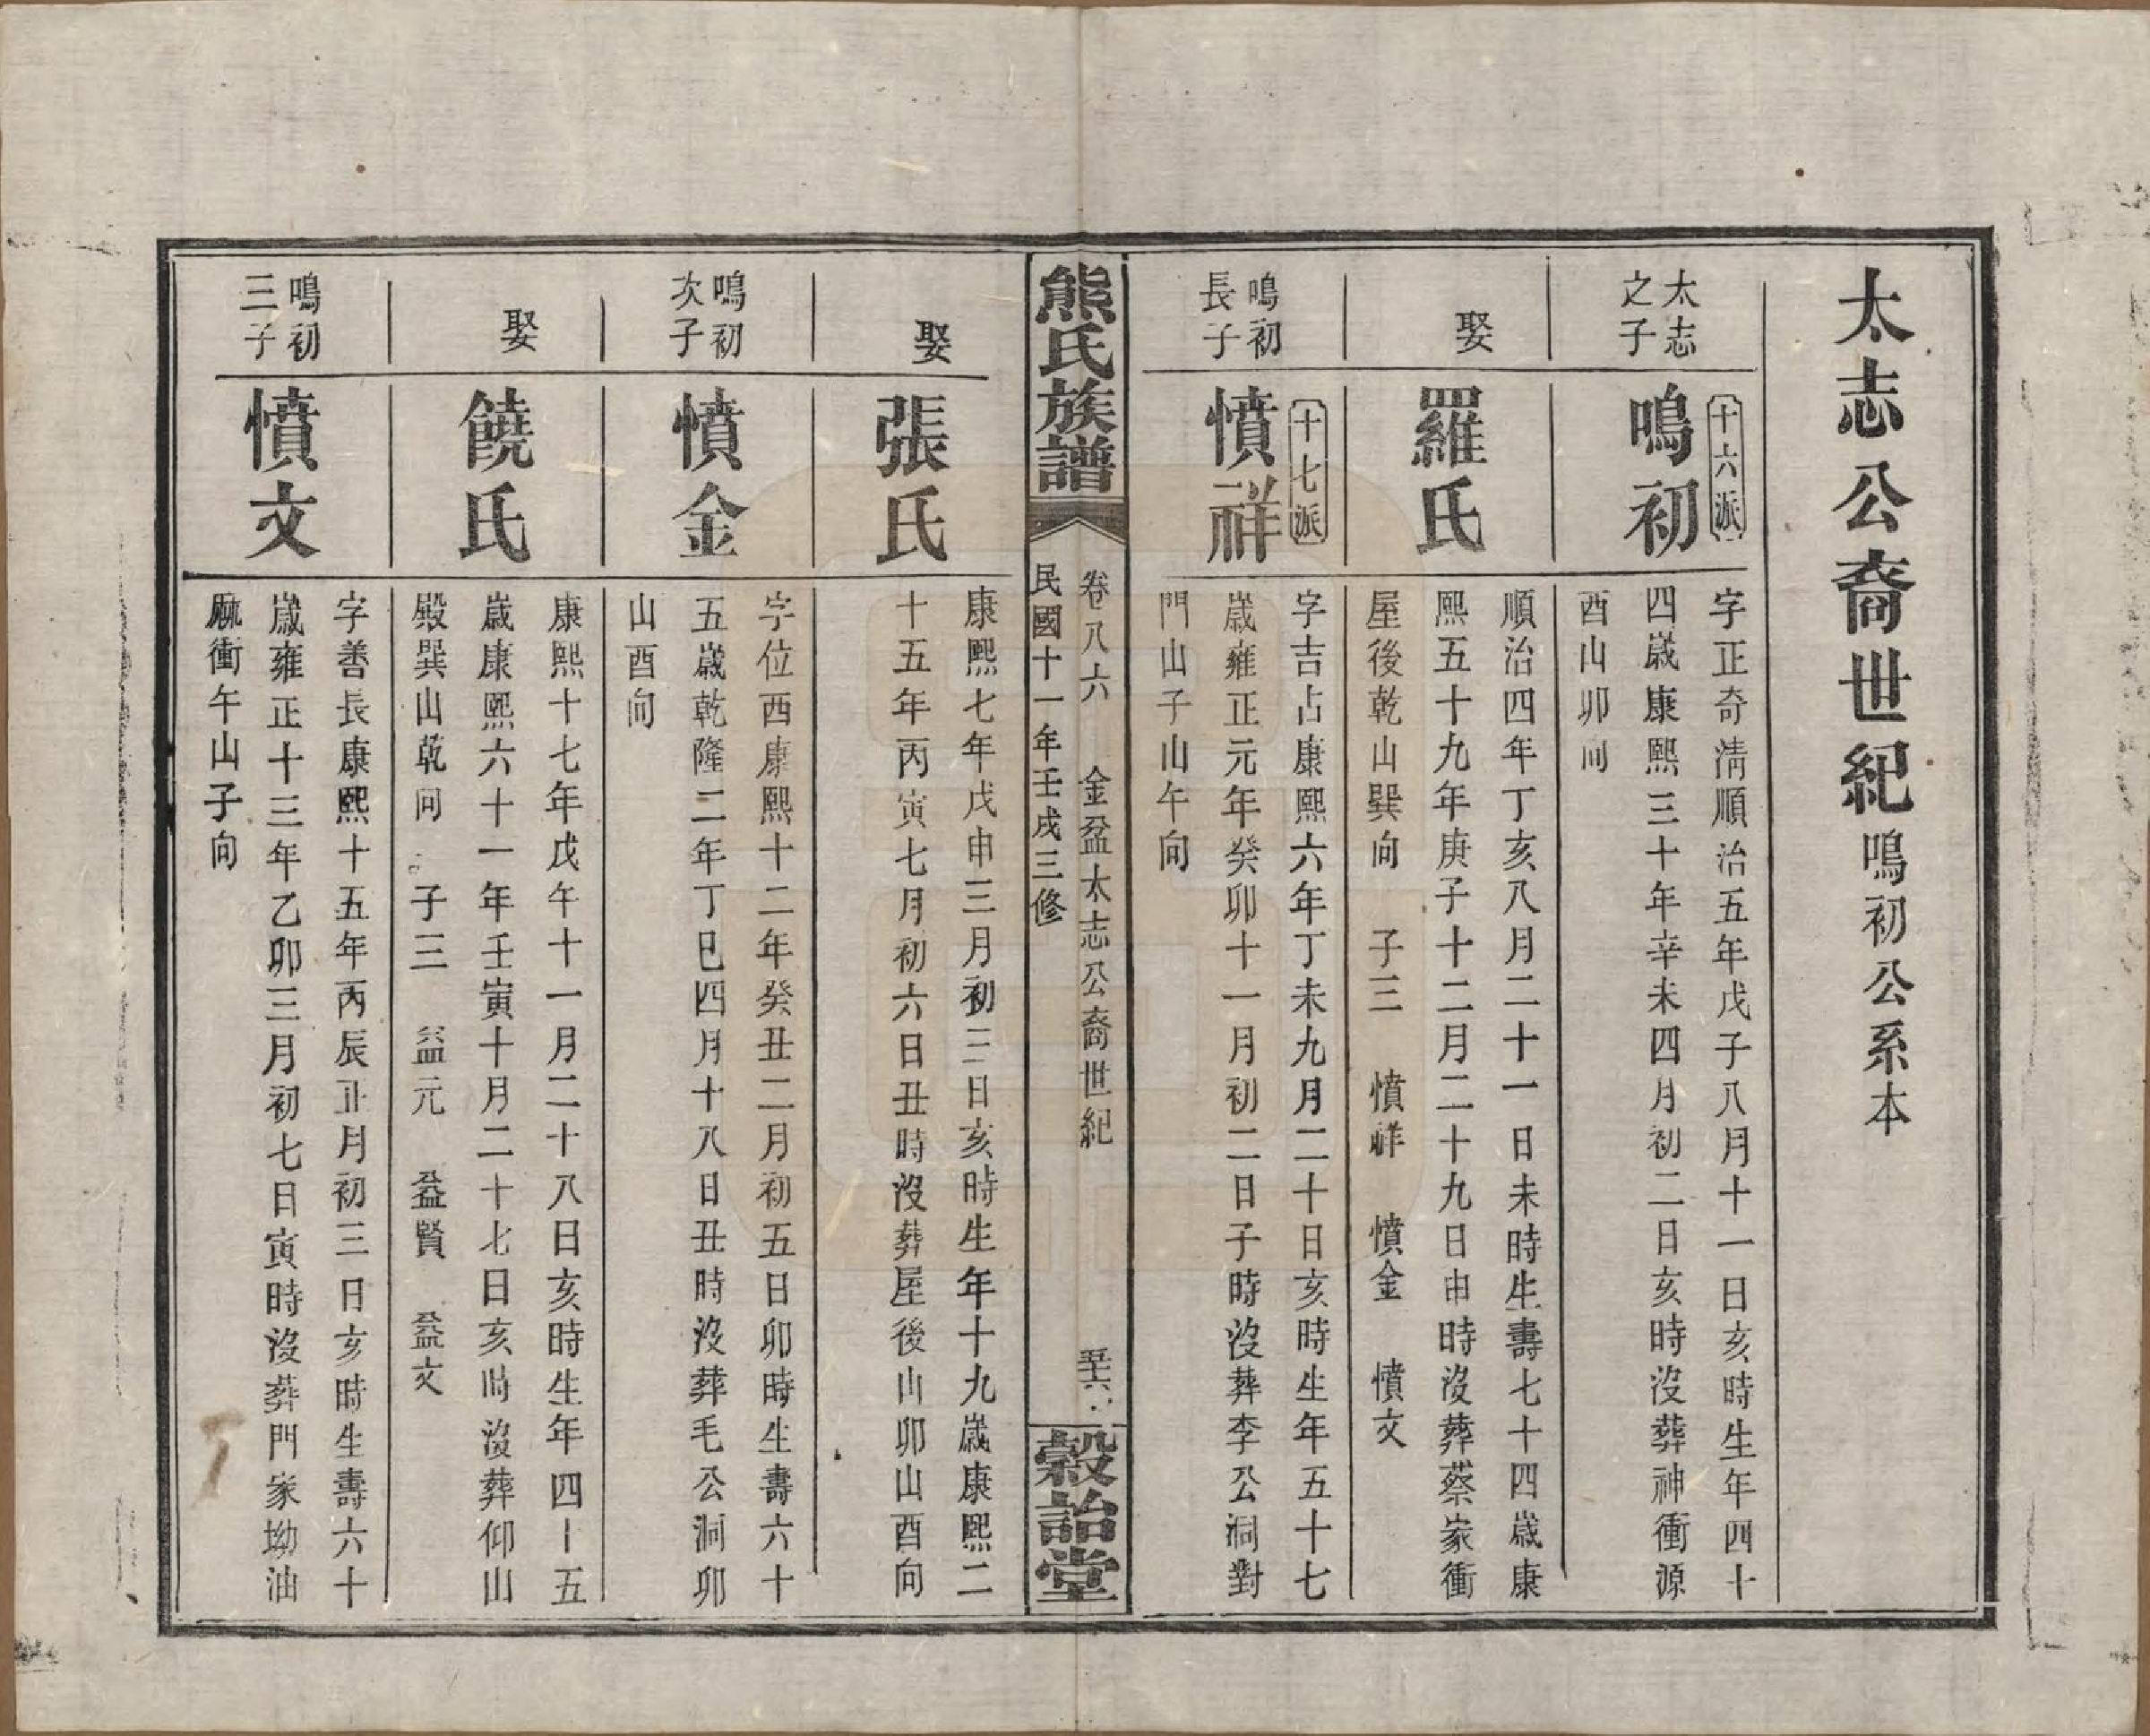 太志公裔世紀鳴初公系本
太志
之子
十六派
鳴初
字正奇清順治五年戊子八月十一日亥時生年四十
四歲康熙三十年辛未四月初二日亥時沒葬神衝源
酉山卯向
娶
羅氏
順治四年丁亥八月二十一日未時生壽七十四歲康
熙五十九年庚子十二月二十九日申時沒葬蔡家衝
屋後乾山巽向 子三 憤祥 憤金 憤文
鳴初
長子
十七派
憤祥
字吉占康熙六年丁未九月二十日亥時生年五十七
歲雍正元年癸卯十一月初二日子時沒葬李公洞對
門山子山午向
熊氏族譜
卷八六 金盆太志公裔世紀
民國十一年壬戌三修
穀詒堂
娶
張氏
康熙七年戊申三月初三日亥時生年十九歲康熙二
十五年丙寅七月初六日丑時沒葬屋後山卯山酉向
鳴初
次子
憤金
字位西康熙十二年癸丑二月初五日卯時生壽六十
五歲乾隆二年丁巳四月十八日丑時沒葬毛公洞卯
山酉向
娶
饒氏
康熙十七年戊午十一月二十八日亥時生年四十五
歲康熙六十一年壬寅十月二十七日亥時沒葬仰山
殿巽山乾向 子三 益元 益賢 益文
鳴初
三子
憤文
字善長康熙十五年丙辰正月初三日亥時生壽六十
歲雍正十三年乙卯三月初七日寅時沒葬門家坳油
麻衝午山子向